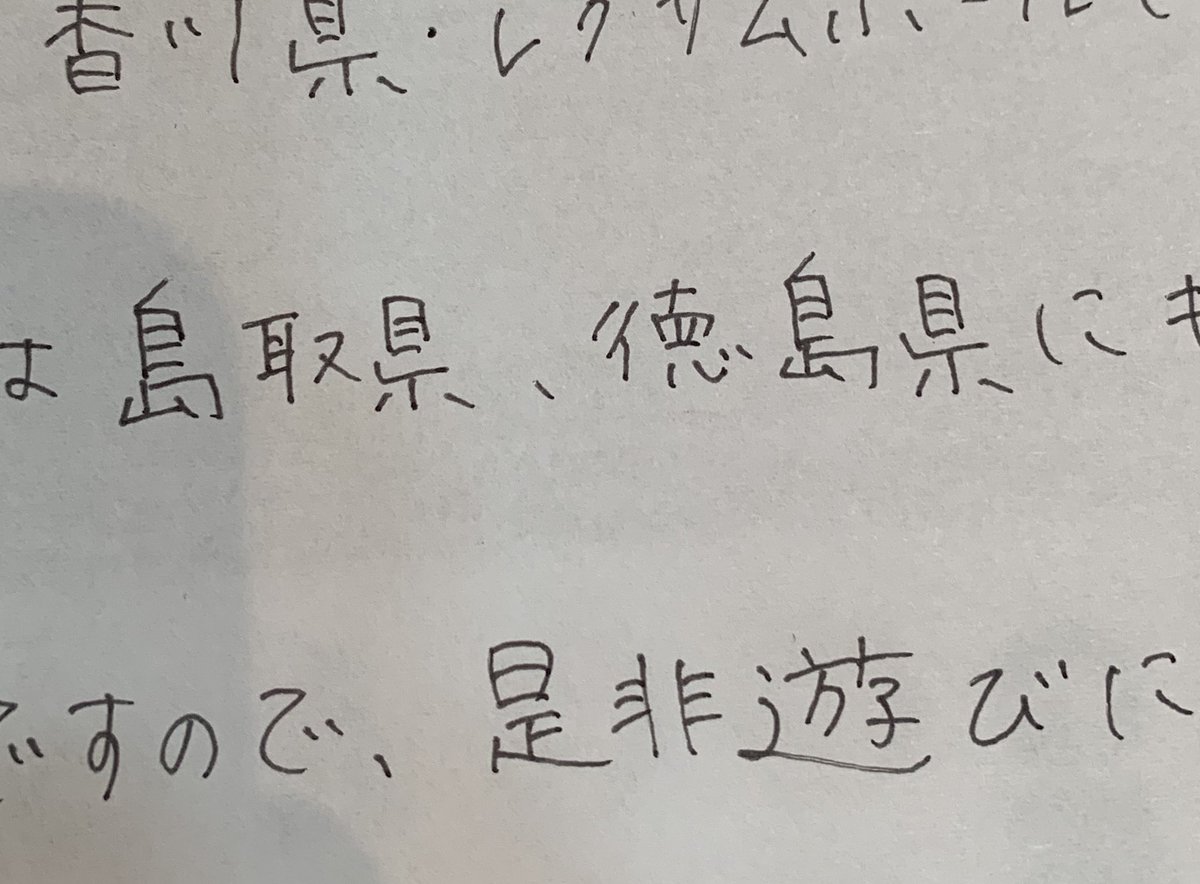 香川県・レクザムホール
は島取県、徳島県にも
ですので、是非遊びに